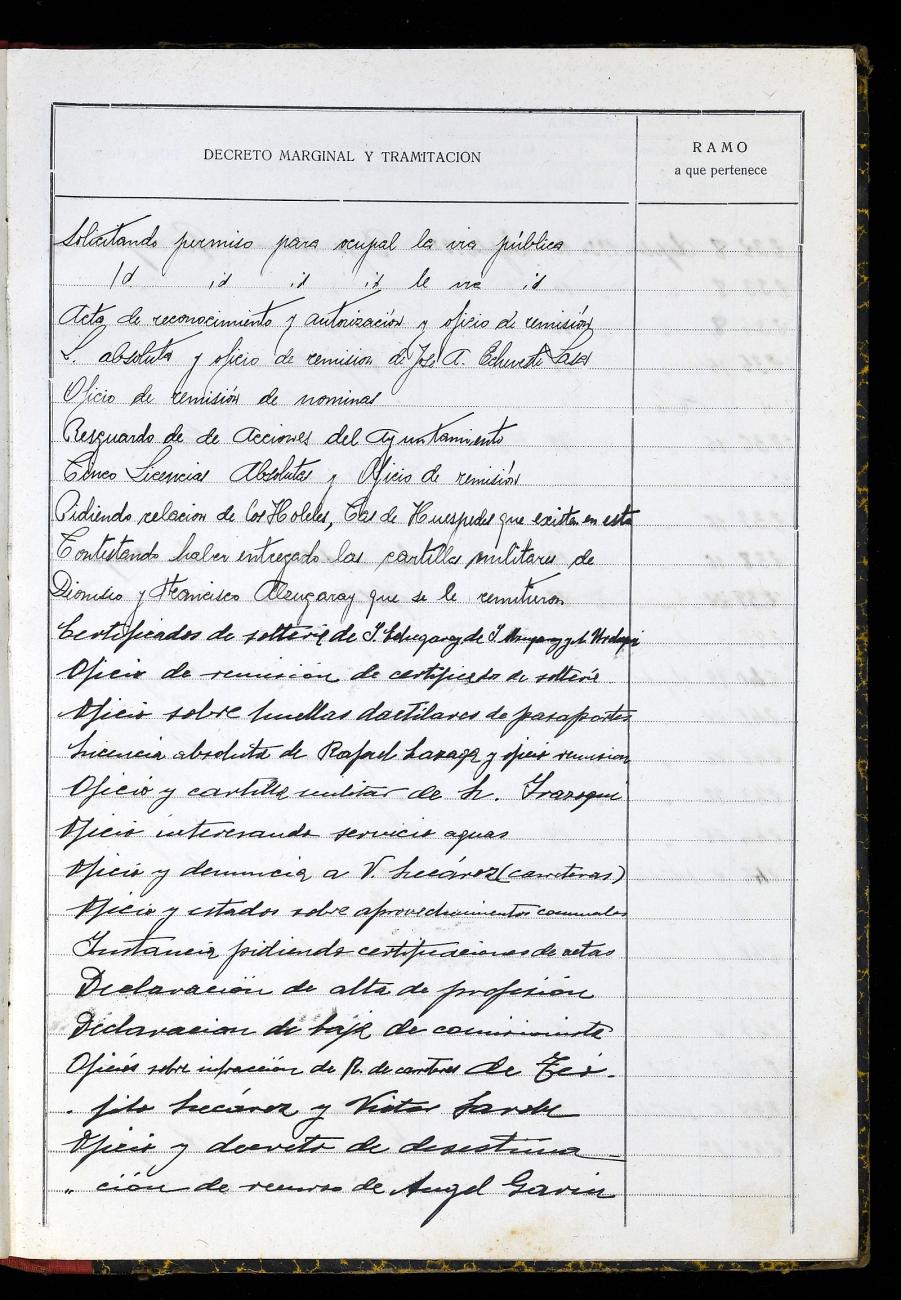 DECRETO MARGINAL Y TRAMITACION
RAMO
a que pertenece
Solicitando permiso para ocupal la via pública
Id id id id le via id
Acta de reconocimiento y autorización y oficio de remisión
L. absoluta y oficio de remision de José A. Echeveste Lasa
Oficio de remisión de nominas
Resguardo de de Acciones del Ayuntamiento
Cinco Licencias Absolutas y Oficio de remisión
Pidiendo relacion de los Hoteles, Cas de Huespedes que existen en esta
Contestando haber entregado las cartillas militares de
Dionisio y Francisco Alzugaray que se le remitieron
Certificados de solteria de J. Echegaray de J.
Oficio de remisión de certificado de solteria
Oficio sobre huellas dactilares de pasaportes
Licencia absoluta de Rafael y oficio remision
Oficio y cartilla militar de L. Irazoqui
Oficio interesando servicio aguas
Oficio y denuncia a V. (carreteras)
Oficio y estados sobre aprovechamientos comunales
Instancia pidiendo certificaciones de actas
Declaración de alta de profesión
Declaracion de baja de comisionista
Oficios sobre infracción de R. de de Teó-
filo y Victor
Oficio y decreto de desestima-
" ción de recurso de Angel Gavin